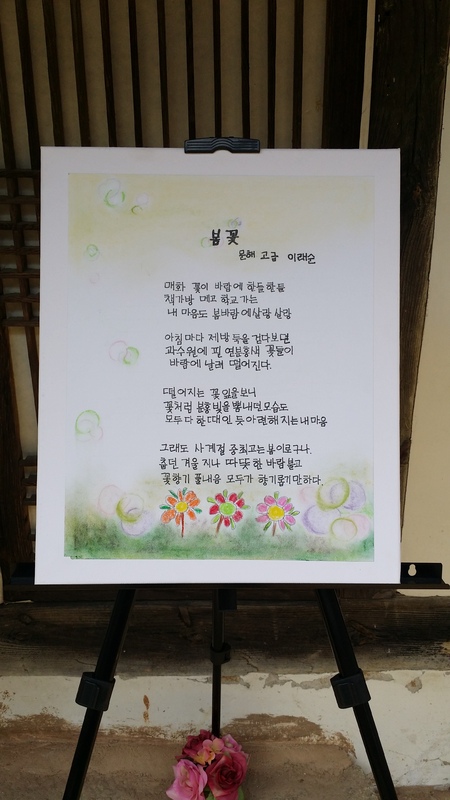 봄꽃
문해 고급 이래순
매화 꽃이 바람에 한들한들
책가방 메고 학교가는
내 마음도 봄바람에 살랑 살랑
아침마다 제방 둑을 걷다보면
과수원에 핀 연분홍색 꽃들이
바람에 날려 떨어진다.
떨어지는 꽃잎을 보니
꽃처럼 분홍빛을 뽐내던 모습도
모두 다 한때인 듯 아련해 지는 내 마음
그래도 사계절 중 최고는 봄이로구나.
춥던 겨울 지나 따뜻한 바람 불고
꽃향기 풀내음 모두가 향기롭기만하다.